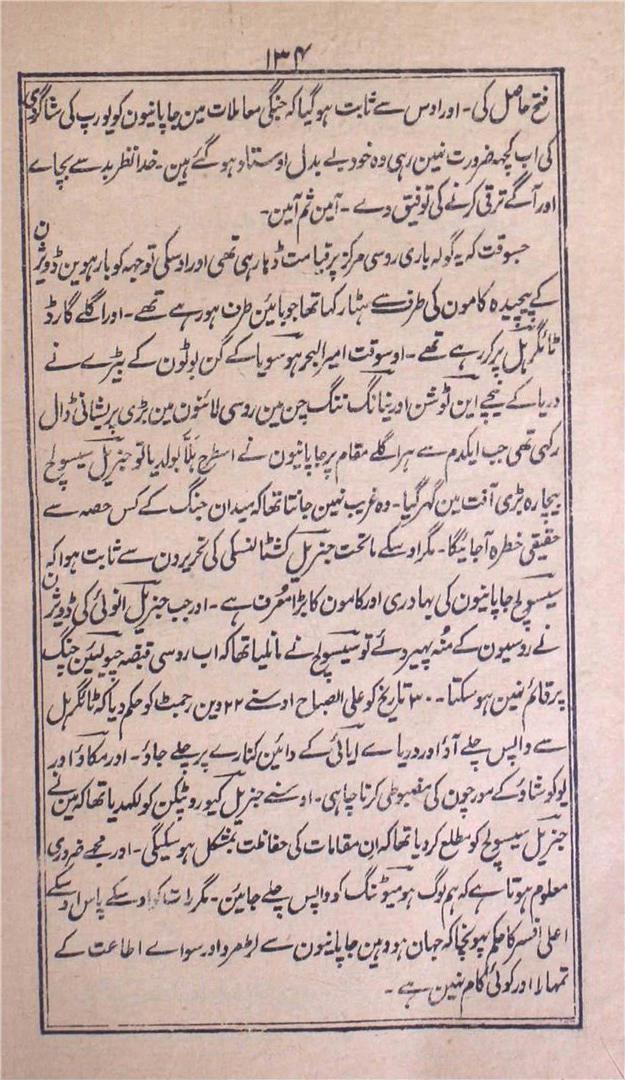 ۱۳۴
فتح حاصل کی۔ اور اوس سے ثابت ہوگیا کہ جنگی معاملات مین جاپانیون کو یورپ کی شاگردی
کی اب کچہہ ضرورت نہین رہی وہ خود بے بدل اوستاد ہوگئے ہین۔ خدا نظر بد سے بچاے
اور آگے ترقی کرنے کی توفیق دے۔ آمین ثم آمین۔
جسوقت کہ یہ گولہ باری روسی مرکز پر قیامت ڈہا رہی تھی اور اوسکی توجہہ کو بارہوین ڈویژن
کے پیچیدہ کامون کی طرف سے ہٹا رکہا تھا جو بائین طرف ہو رہے تھے۔ اور اگلے گارڈ
ٹائگر ہل پر کر رہے تھے۔ اوسوقت امیرالبحر ہوسویا کے گن بوٹون کے بیڑے نے
دریا کے نیچے این ٹوشن اور نیانگ ننگ چن مین روسی لائنون مین بڑی پریشانی ڈال
رکہی تھی جب ایکدم سے ہر اگلے مقام پر جاپانیون نے اسطرح ہلّا بولدیا تو جنریل سیسولچ
بیچارہ بڑی آفت مین گہر گیا۔ وہ غریب نہین جانتا تھا کہ میدان جنگ کے کس حصہ سے
حقیقی خطرہ آجائیگا۔ مگر اوسکے ماتحت جنریل کشٹالنسکی کی تحریر دن سے ثابت ہوا کہ
سیسولچ جاپانیون کی بہادری اور کامون کا بڑا معرف ہے۔ اور جب جنریل انوئی کی ڈویژن
نے روسیون کے منہ پہیر دئے تو سیسولچ نے مانلیا تھا کہ اب روسی قبضہ چیولیئن چنگ
پر قائم نہین ہوسکتا۔ ۳۰ تاریخ کو علی الصباح اوسنے ۲۲ وین رجمنٹ کو حکم دیا کہ ٹائگر ہل
سے واپس چلے آؤ اور دریاے ایائی کے دائین کنارے پر چلے جاؤ۔ اور مکاؤ اور
یوکوشاؤ کے مورچون کی مضبوطی کرنا چاہی۔ اوسنے جنریل کیوروپٹکن کو لکہدیا تھا کہ مین نے
جنریل سیسولچ کو مطلع کردیا تھا کہ ان مقامات کی حفاظت بمشکل ہوسکیگی۔ اور مجھے ضروری
معلوم ہوتا ہے کہ ہم لوگ ہومیوٹنگ کو واپس چلے جایئن۔ مگر رات کو اوسکے پاس اوسکے
اعلیٰ افسر کا حکم پہونچا کہ جہان ہو وہین جاپانیون سے لڑمرو اور سواے اطاعت کے
تمہارا اور کوئی کام نہین ہے۔